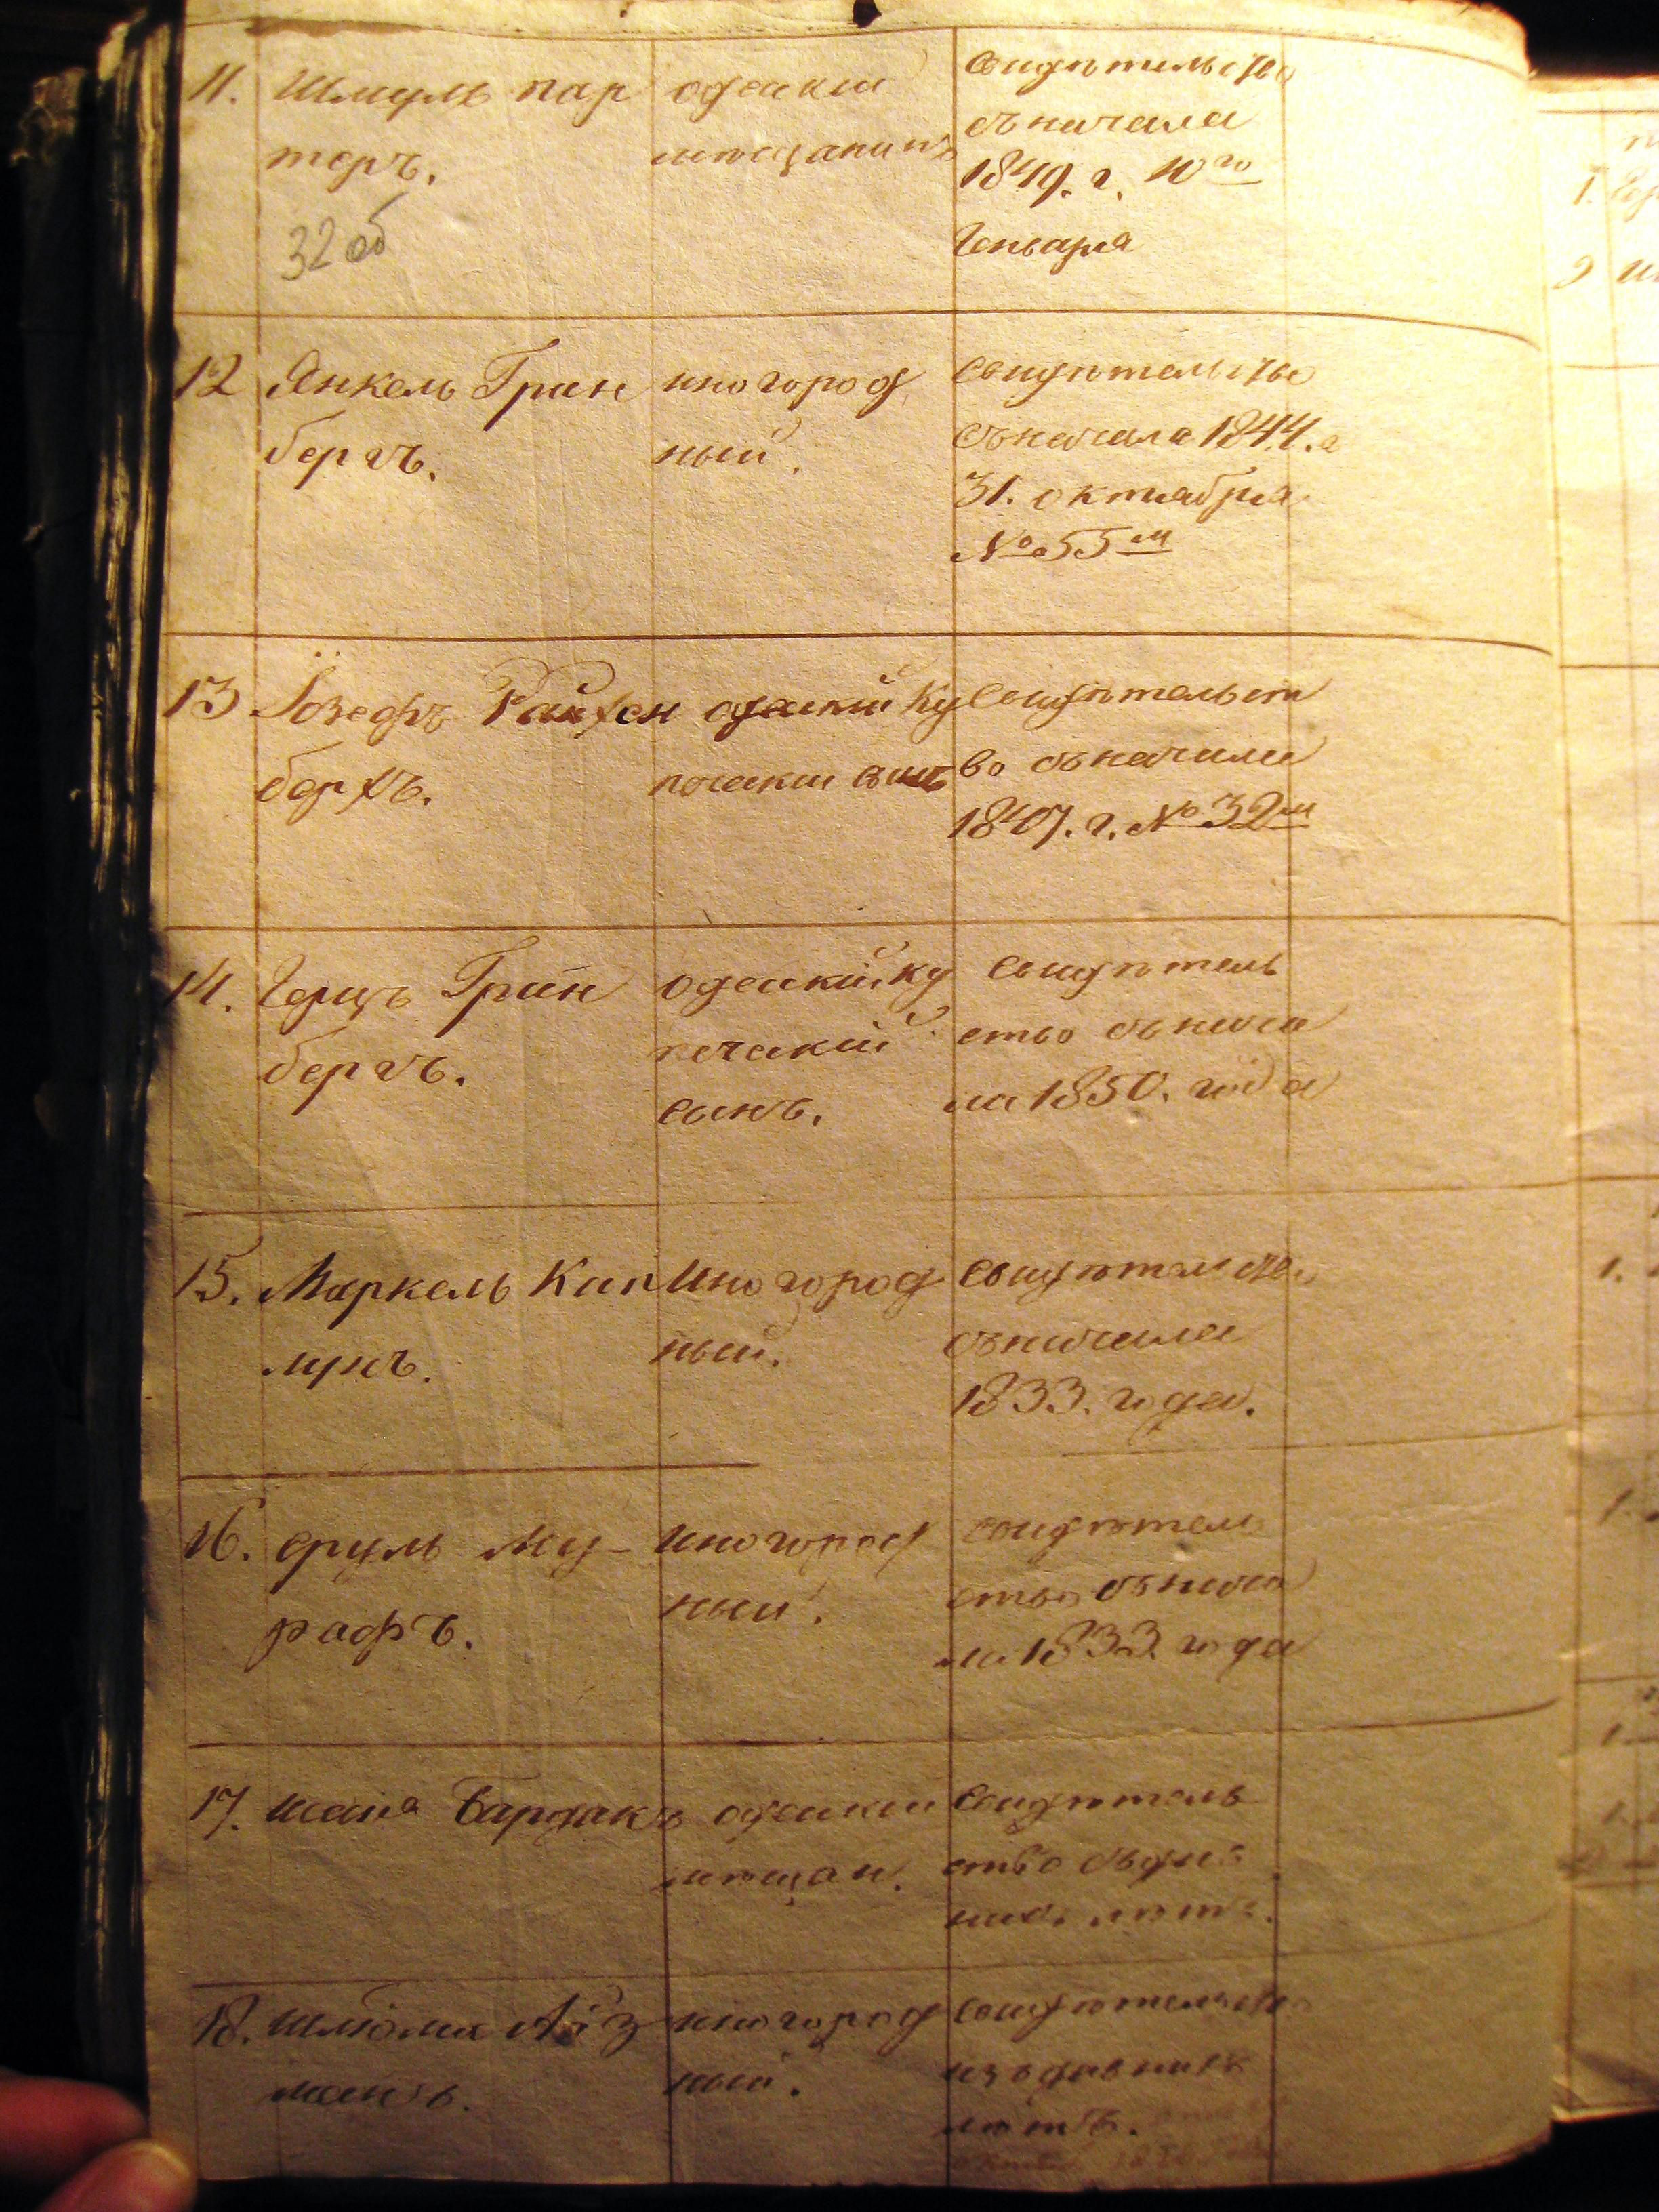 11. Шмуль пар
теръ.
32 об
одескій
мѣщанинъ
свидѣтельство
съ начала
1849. г. 10го
Генваря
12 Янкель Грин
бергъ.
иногород
ный.
свидѣтельство
съ начала 1844. г
31. октября
№ 55м
13 Іозефъ Райхен
берхъ.
одескій ку
пческій сынъ
Свидѣтельст
во съ начала
1847. г. № 32м
14. Герцъ Грин
бергъ.
одескій ку
печескій
сынъ.
свидѣтель
ство съ нача
ла 1850. года
15. Маркель Кап
лунъ.
Иногород
ный.
свидѣтельство
съ начала
1833. года.
16. сруль Му-
рафъ.
Иногород
ный.
свидѣтель
ство съ нача
ла 1833. года
17. Бардакъ
одескій
мѣщан.
Свидѣтель
ство съ дав
нихъ лѣтъ.
18. шлiома Айз
манъ.
иногород
ный.
свидѣтельство
изъ давнихъ
лѣтъ.